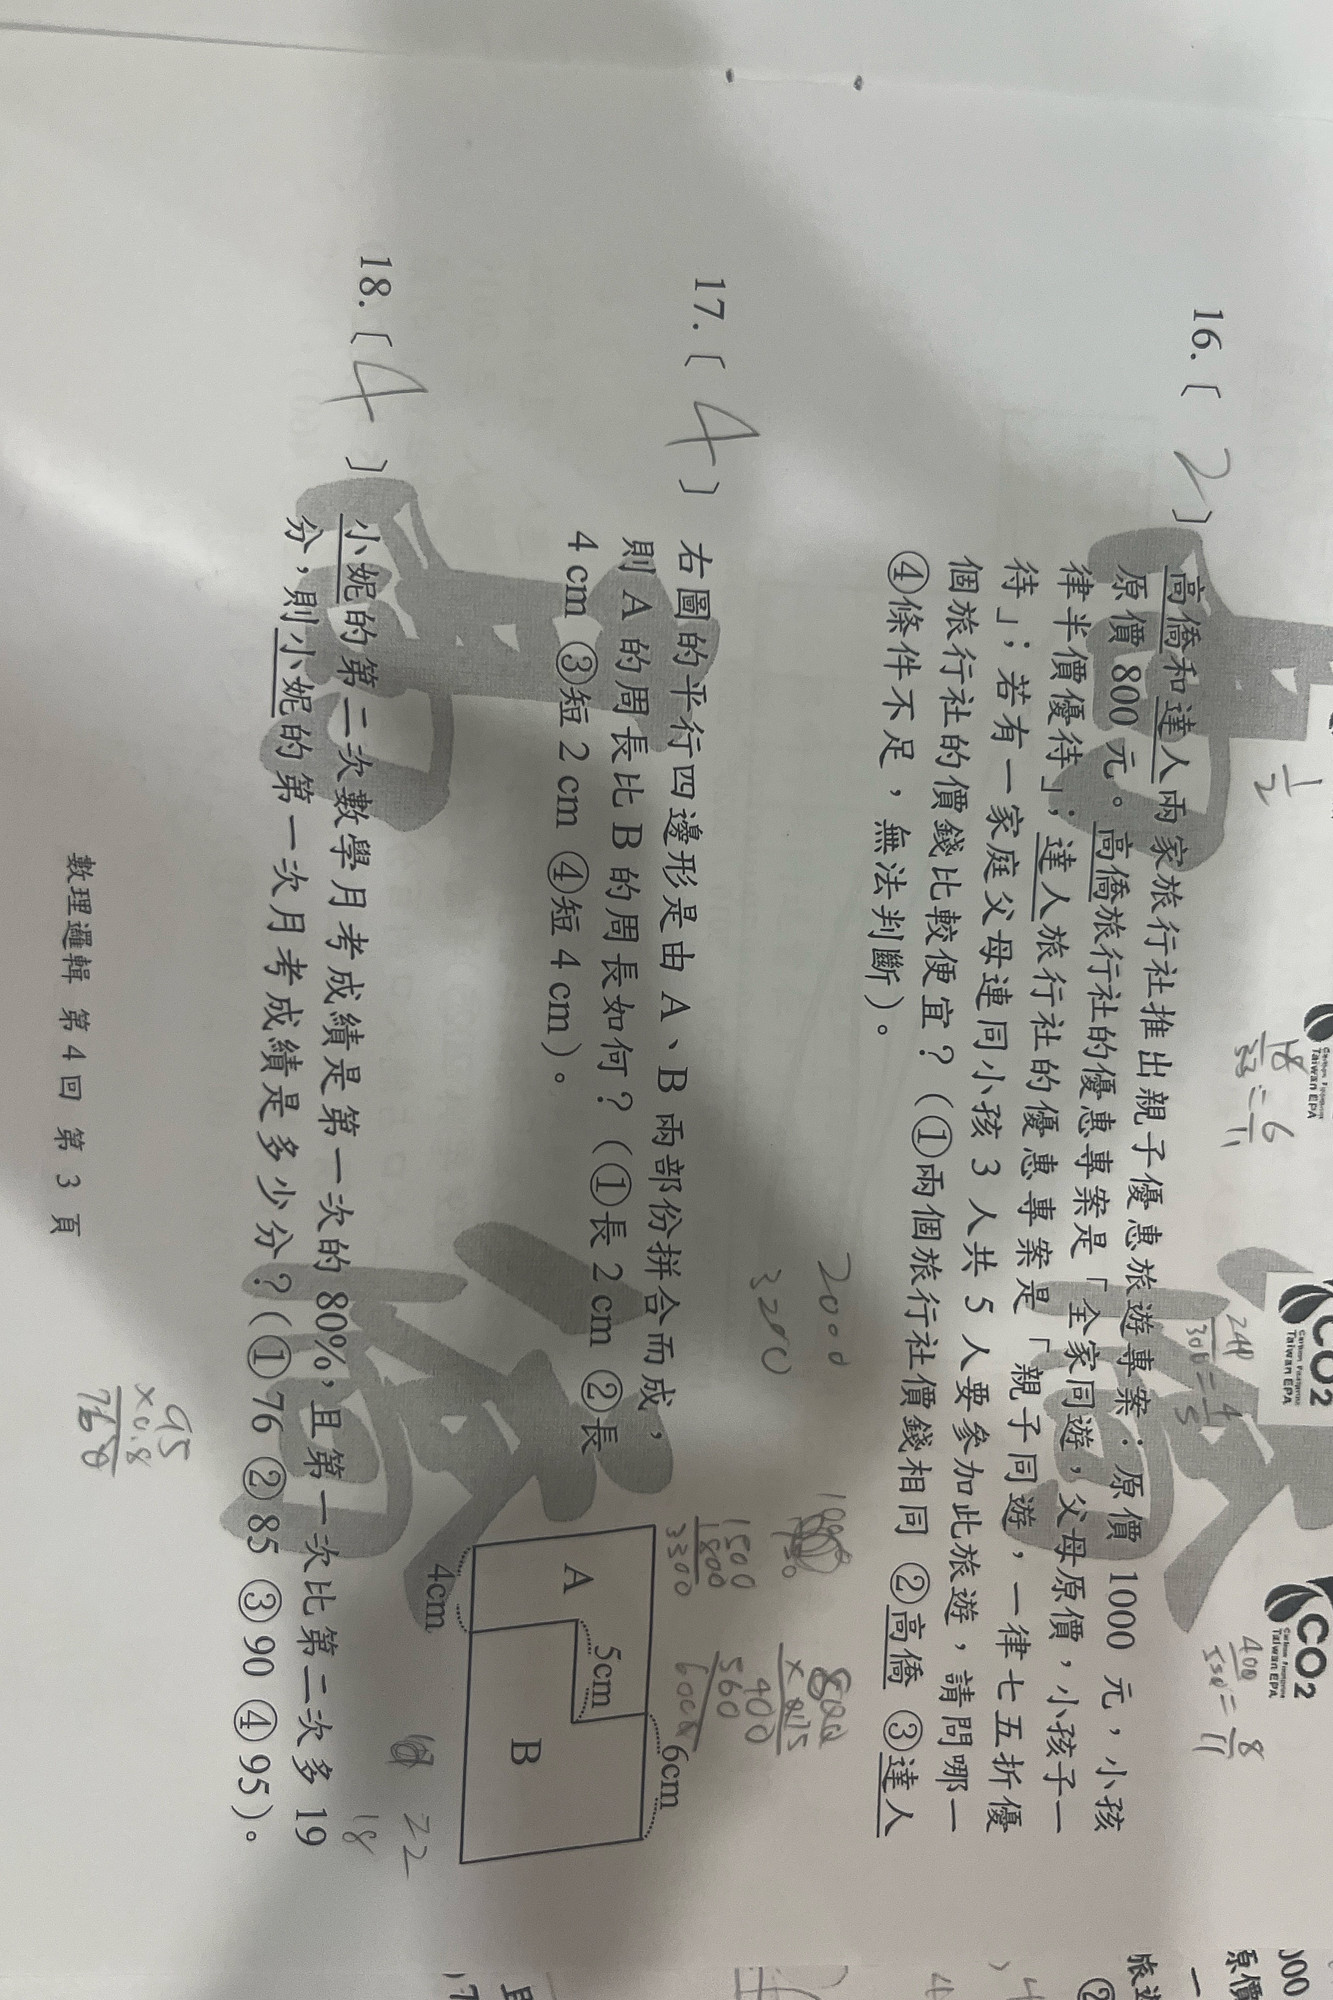 16.〔 2 〕高僑和達人兩家旅行社推出親子優惠旅遊專案：原價 1000 元，小孩
原價 800 元。高僑旅行社的優惠專案是「全家同遊，父母原價，小孩子一
律半價優待」；達人旅行社的優惠專案是「親子同遊，一律七五折優
待」；若有一家庭父母連同小孩 3 人共 5 人要參加此旅遊，請問哪一
個旅行社的價錢比較便宜？（①兩個旅行社價錢相同 ②高僑 ③達人
④條件不足，無法判斷）。
2000
3200
1500
1800
3300
17.〔 4 〕右圖的平行四邊形是由 A、B 兩部份拼合而成，
則 A 的周長比 B 的周長如何？（①長 2 cm ②長
4 cm ③短 2 cm ④短 4 cm）。
6cm
5cm
A
B
4cm
22
18
18.〔 4 〕小妮的第二次數學月考成績是第一次的 80%，且第一次比第二次多 19
分，則小妮的第一次月考成績是多少分？（①76 ②85 ③90 ④95）。
95
×0.8
數理邏輯 第 4 回 第 3 頁
CO2
Taiwan EPA
CO2
Taiwan EPA
Taiwan EPA